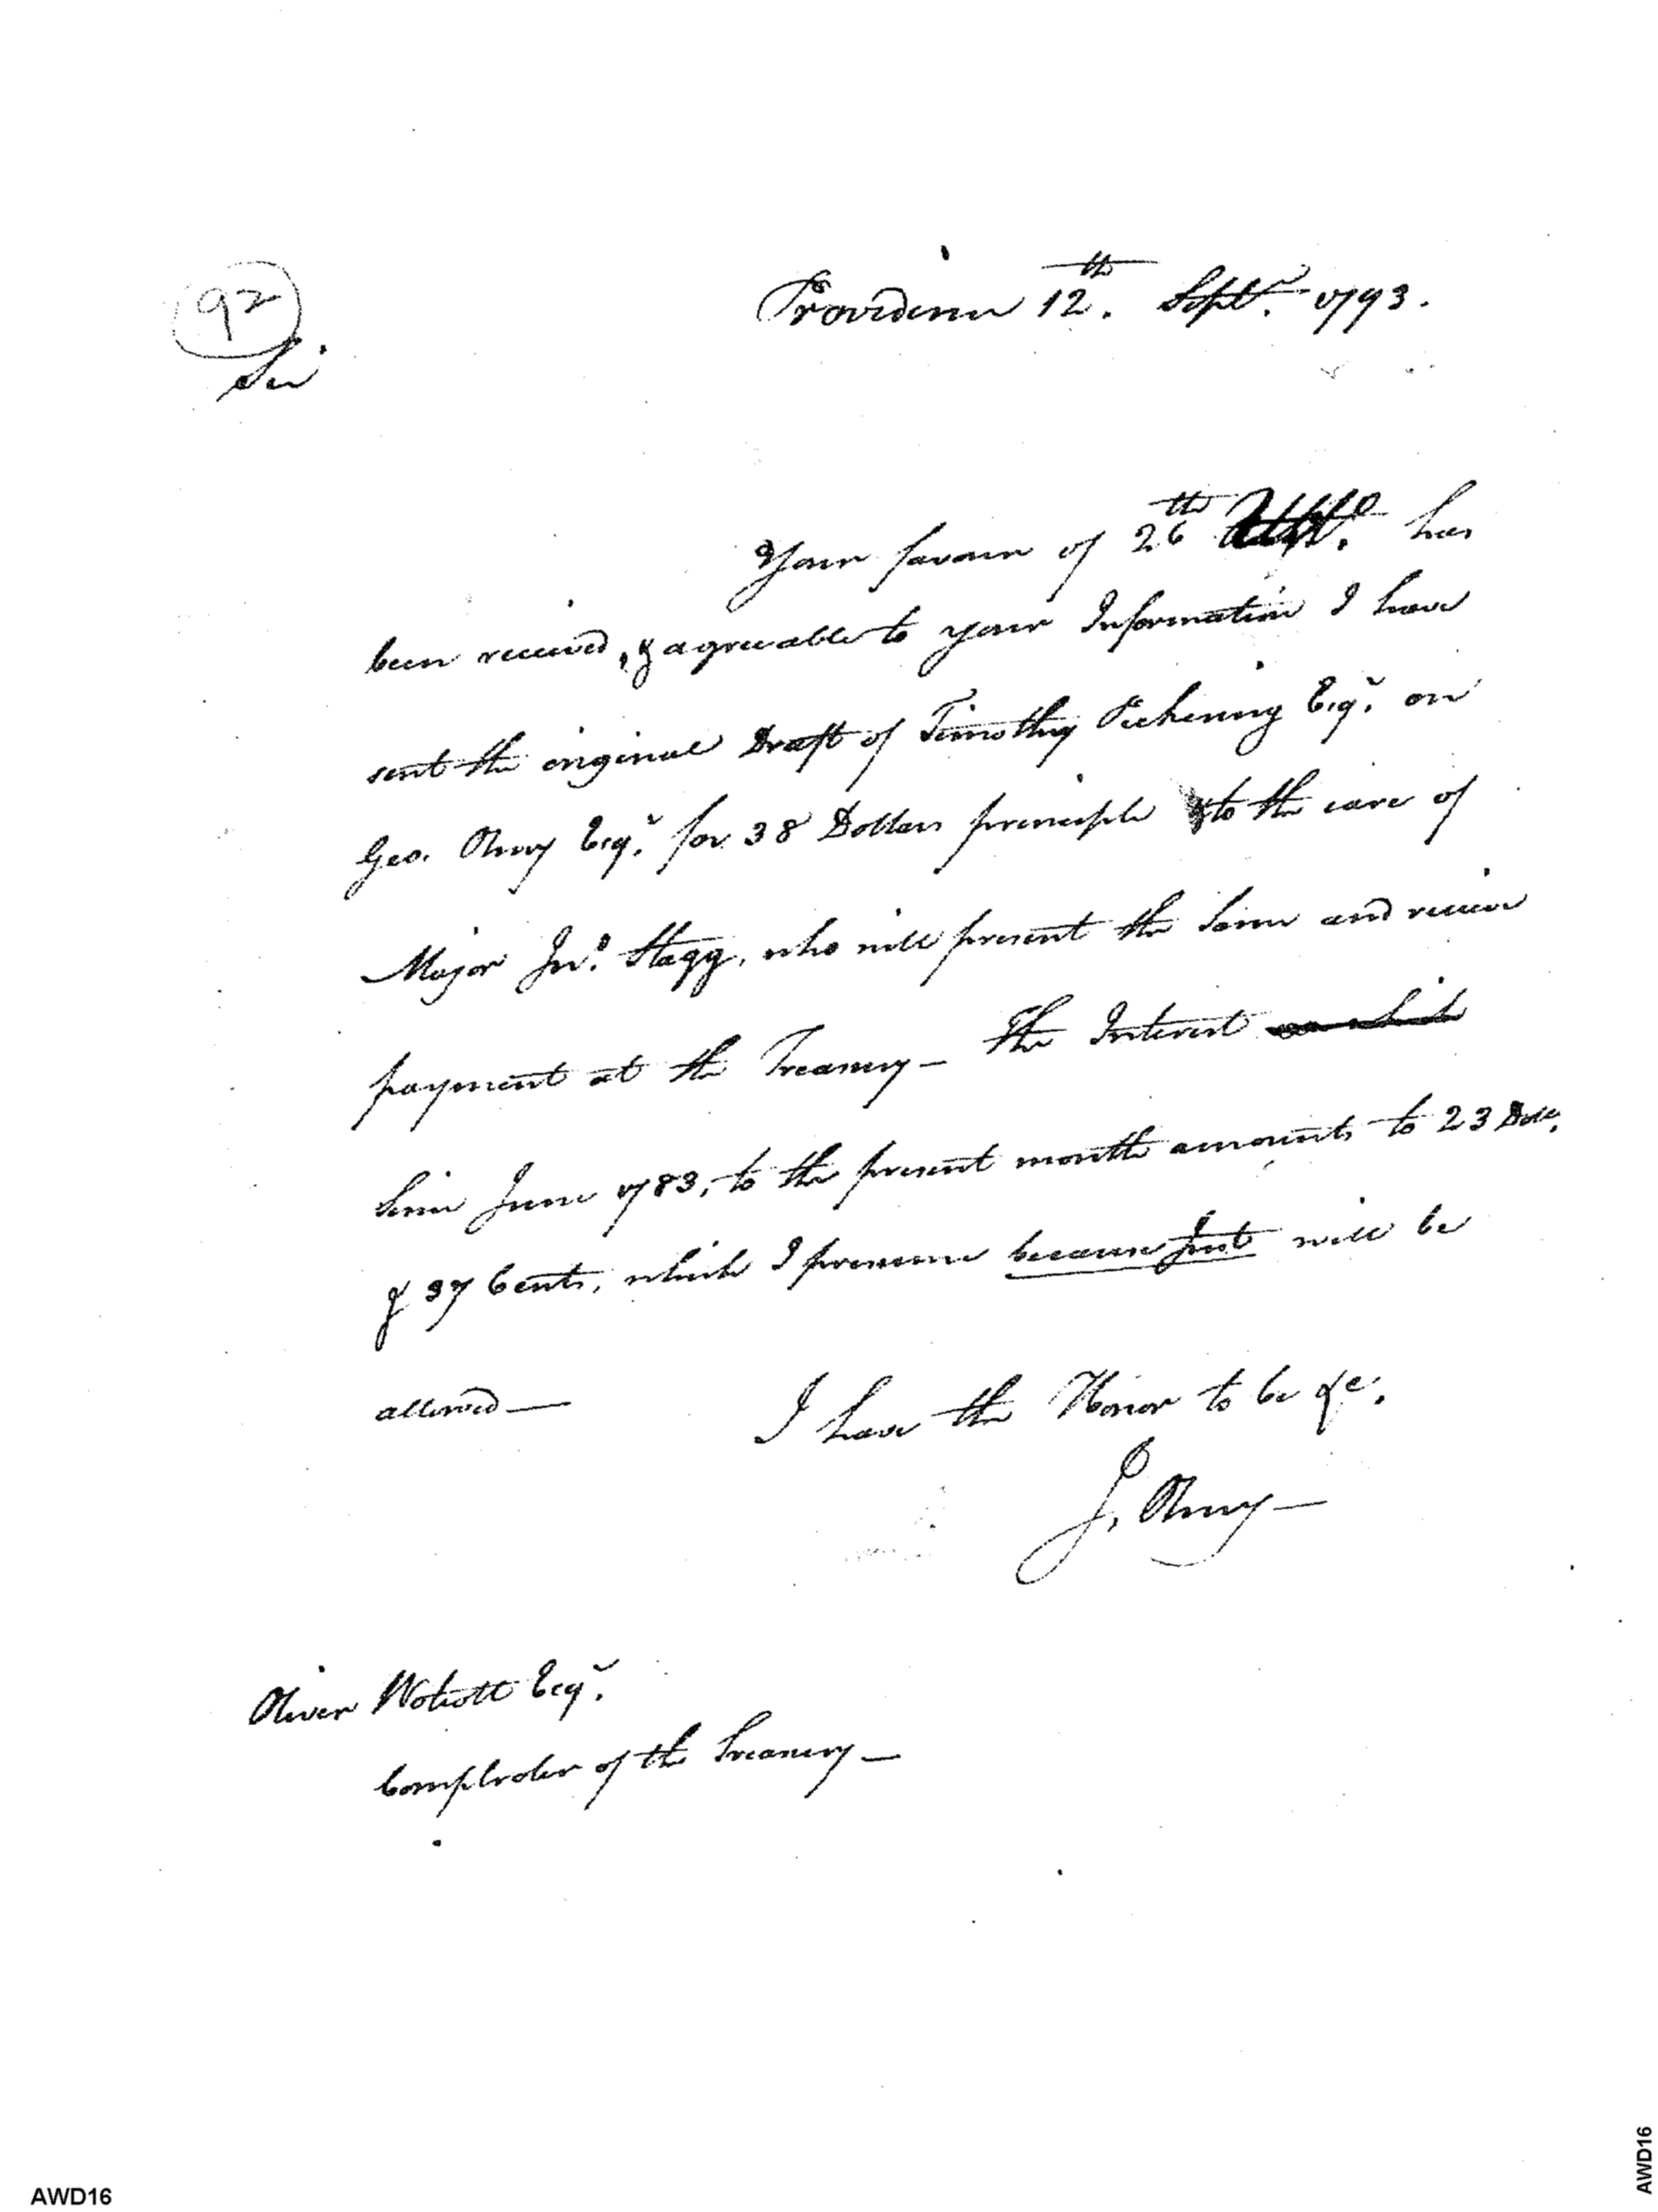 92
Providence 12th. Septr. 1793.
Sir
Your favour of 26th Ulto. has
been received, & agreeable to your Information I have
sent the original Draft of Timothy Pickering Esqr. on
Geo. Olney Esqr. for 38 Dollars principle to the care of
Major Jno. Stagg, who will present the same and receive
payment at the Treasury— The Interest on which
Since June 1783, to the present month amounts to 23 Dolls.
& 37 Cents, which I presume because just will be
allowed—
I have the Honor to be &c.
J. Olney—
Oliver Wolcott Esqr.
Comptroler of the Treasury—
AWD16
AWD16